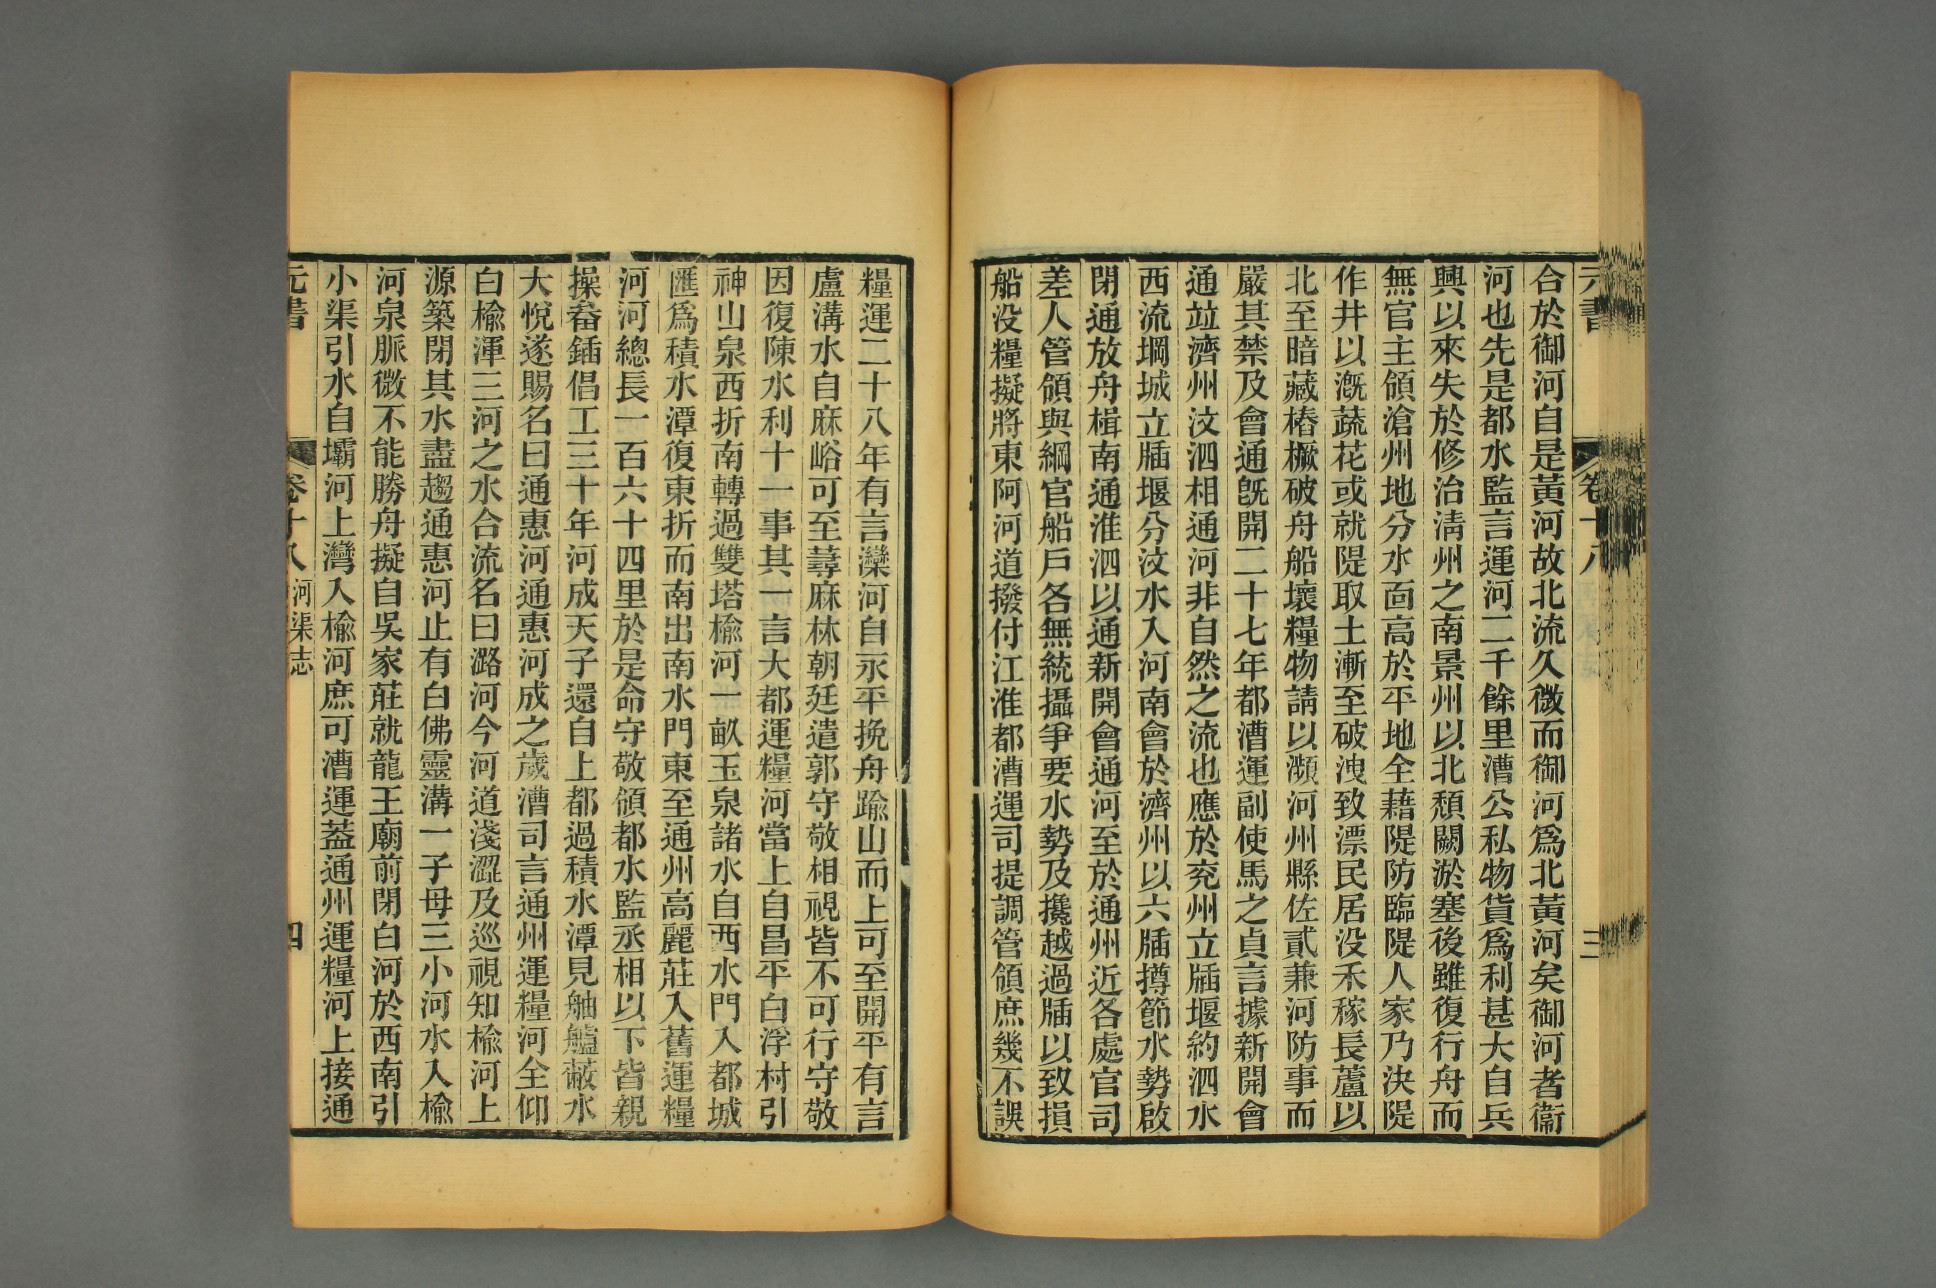 元書
卷十八
三
合於御河自是黃河故北流久微而御河爲北黃河矣御河者衞
河也先是都水監言運河二千餘里漕公私物貨爲利甚大自兵
興以來失於修治淸州之南景州以北頹闕淤塞後雖復行舟而
無官主領滄州地分水面高於平地全藉隄防臨隄人家乃決隄
作井以漑蔬花或就隄取土漸至破洩致漂民居没禾稼長蘆以
北至暗藏樁橛破舟船壞糧物請以瀕河州縣佐貳兼河防事而
嚴其禁及會通旣開二十七年都漕運副使馬之貞言據新開會
通竝濟州汶泗相通河非自然之流也應於兖州立牐堰約泗水
西流堈城立牐堰分汶水入河南會於濟州以六牐撙節水勢啟
閉通放舟楫南通淮泗以通新開會通河至於通州近各處官司
差人管領與綱官船戶各無統攝爭要水勢及攙越過牐以致損
船没糧擬將東阿河道撥付江淮都漕運司提調管領庶幾不誤
糧運二十八年有言灤河自永平挽舟踰山而上可至開平有言
盧溝水自麻峪可至蕁麻林朝廷遣郭守敬相視皆不可行守敬
因復陳水利十一事其一言大都運糧河當上自昌平白浮村引
神山泉西折南轉過雙塔楡河一畝玉泉諸水自西水門入都城
匯爲積水潭復東折而南出南水門東至通州高麗莊入舊運糧
河河總長一百六十四里於是命守敬領都水監丞相以下皆親
操畚鍤倡工三十年河成天子還自上都過積水潭見舳艫蔽水
大悅遂賜名曰通惠河通惠河成之歲漕司言通州運糧河全仰
白楡渾三河之水合流名曰潞河今河道淺澀及巡視知楡河上
源築閉其水盡趨通惠河止有白佛靈溝一子母三小河水入楡
河泉脈微不能勝舟擬自吳家莊就龍王廟前閉白河於西南引
小渠引水自壩河上灣入楡河庶可漕運蓋通州運糧河上接通
元書
卷十八
河渠志
四